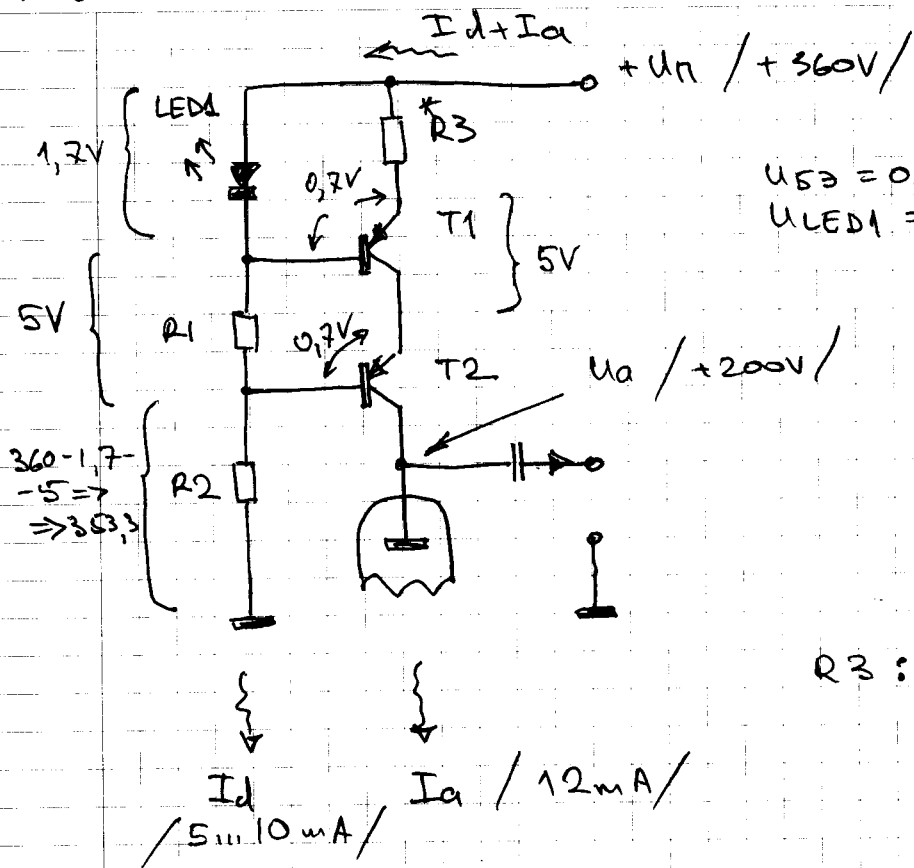 Id+Ia
+Uп /+360V/
LED1
*R3
1,7V
0,7V
T1
5V
UБЭ = 0
ULED1 =
5V
R1
0,7V
T2
Ua /+200V/
360-1,7-
-5=>
=>353,3
R2
R3 :
Id
/5...10mA/
Ia /12mA/